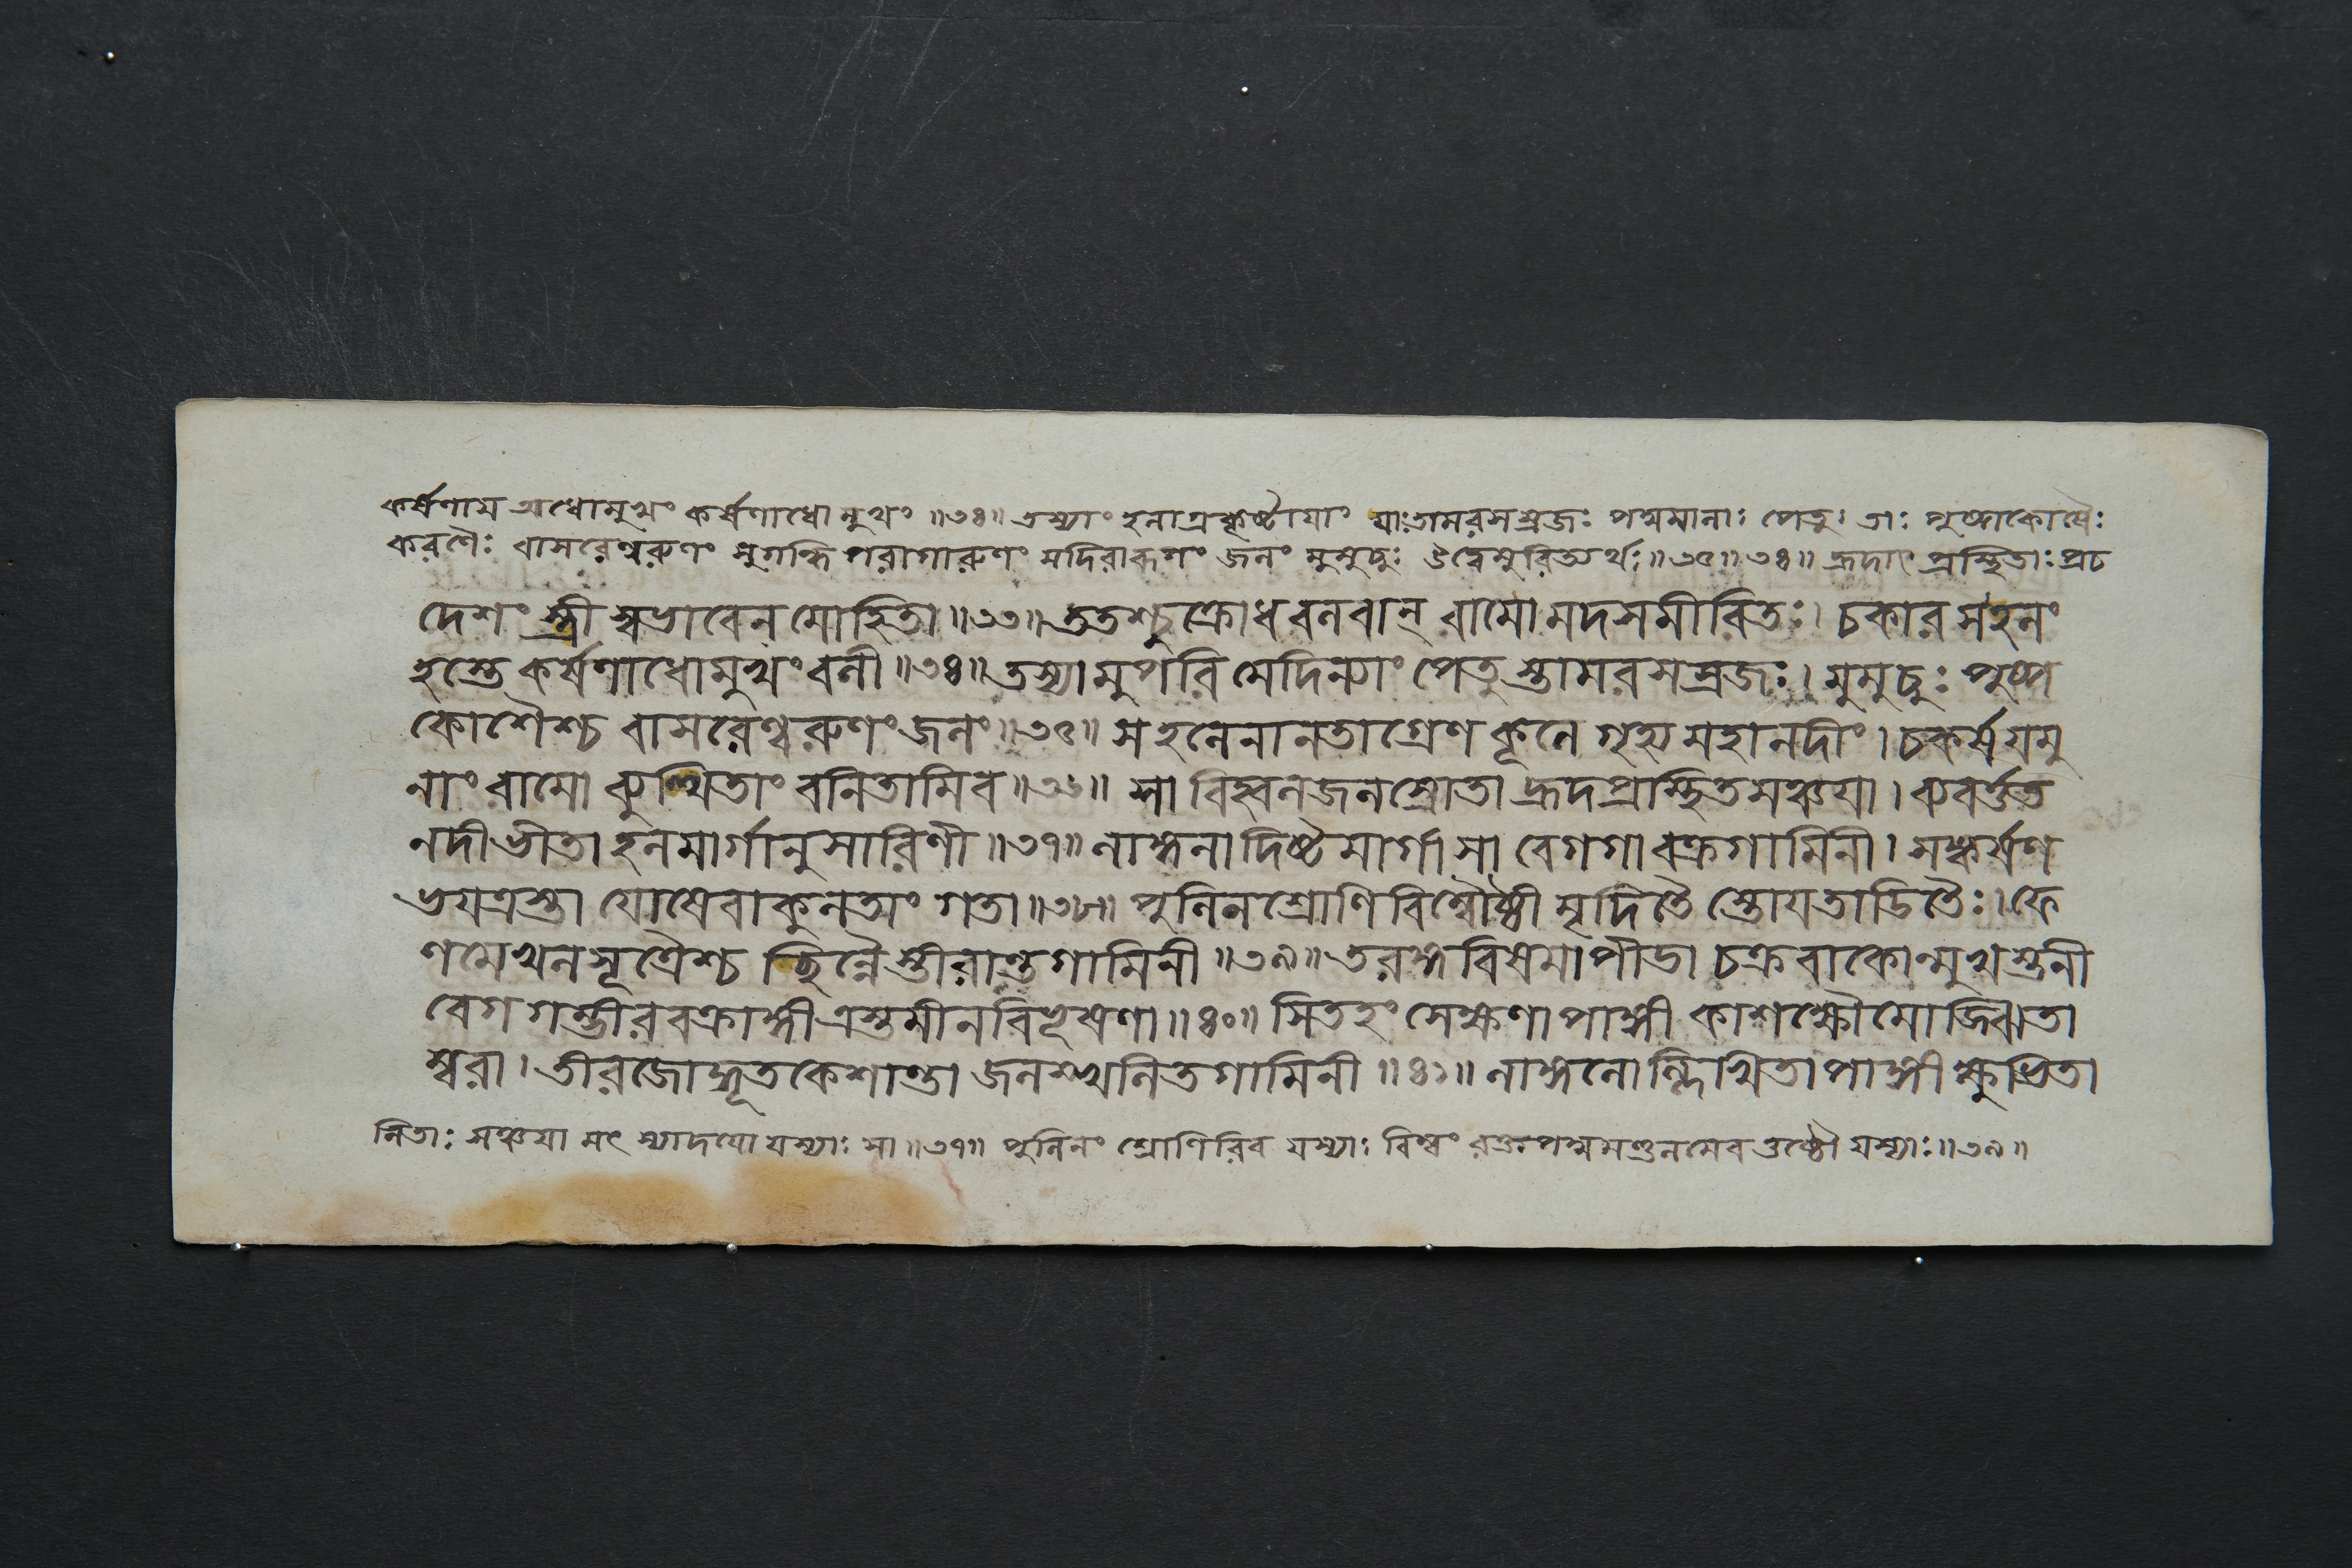 কর্ষণাম অধোমুখং কর্ষণাধোমুখং ॥৩৪॥ তস্যাং হলাগ্রকৃষ্টায়াং যাঃ তামরসস্রজঃ পদ্মমালাঃ পেতুঃ তাঃ পুষ্পকোষৈঃ
করণৈঃ বাসরেণ্বরুণং সুগন্ধি পরাগারুণং মদিরারূপং জলং মুমুচুঃ উদ্বেমুরিত্যর্থঃ ॥৩৫॥৩৪॥ হ্রদাৎ প্রস্থিতাঃ প্রচ
দেশং স্ত্রী স্বভাবেন মোহিতা ॥৩৩॥ ততশ্চুক্রোধ বলবান্ রামো মদসমীরিতঃ। চকার স হলং
হস্তে কর্ষণাধোমুখং বলী ॥৩৪॥ তস্যামুপরি মেদিন্যাং পেতুস্তামরসস্রজঃ। মুমুচুঃ পুষ্প
কোশৈশ্চ বাসরেণ্বরুণং জলং ॥৩৫॥ স হলেনানতাগ্রেণ কূলে গৃহ্য মহানদীং। চকর্ষ যমু
নাং রামো ব্যুত্থিতাং বনিতামিব ॥৩৬॥ সা বিহ্বলজলস্রোতা হ্রদপ্রস্থিতসঞ্চয়া। ব্যবর্ত্তত
নদী ভীতা হলমার্গানুসারিণী ॥৩৭॥ লাঙ্গলাদিষ্টমার্গা সা বেগগা বক্রগামিনী। সঙ্কর্ষণ
ভয়ত্রস্তা যোষেবাকুলতাং গতা ॥৩৮॥ পুলিনশ্রোণিবিম্বৌষ্ঠী মৃদিতৈস্তোয়তাডিতৈঃ। ফে
ণমেখলসূত্রৈশ্চ চ্ছিন্নৈস্তীরান্তগামিনী ॥৩৯॥ তরঙ্গবিষমাপীডা চক্রবাকোন্মুখস্তনী
বেগগম্ভীরবক্রাঙ্গী ত্রস্তমীনবিভূষণা ॥৪০॥ সিতহংসেক্ষণাপাঙ্গী কাশক্ষৌমোচ্ছ্রিতা
ম্বরা। তীরজোদ্ধূতকেশান্তা জলস্খলিতগামিনী ॥৪১॥ লাঙ্গলোল্লিখিতাপাঙ্গী ক্ষুভিতা
লিতাঃ সঞ্চয়া মৎস্যাদয়ো যস্যাঃ সা ॥৩৭॥ পুলিনং শ্রোণিরিব যস্যাঃ বিম্বং রক্তপদ্মমণ্ডলমেব ওষ্ঠৌ যস্যাঃ ॥৩৯॥